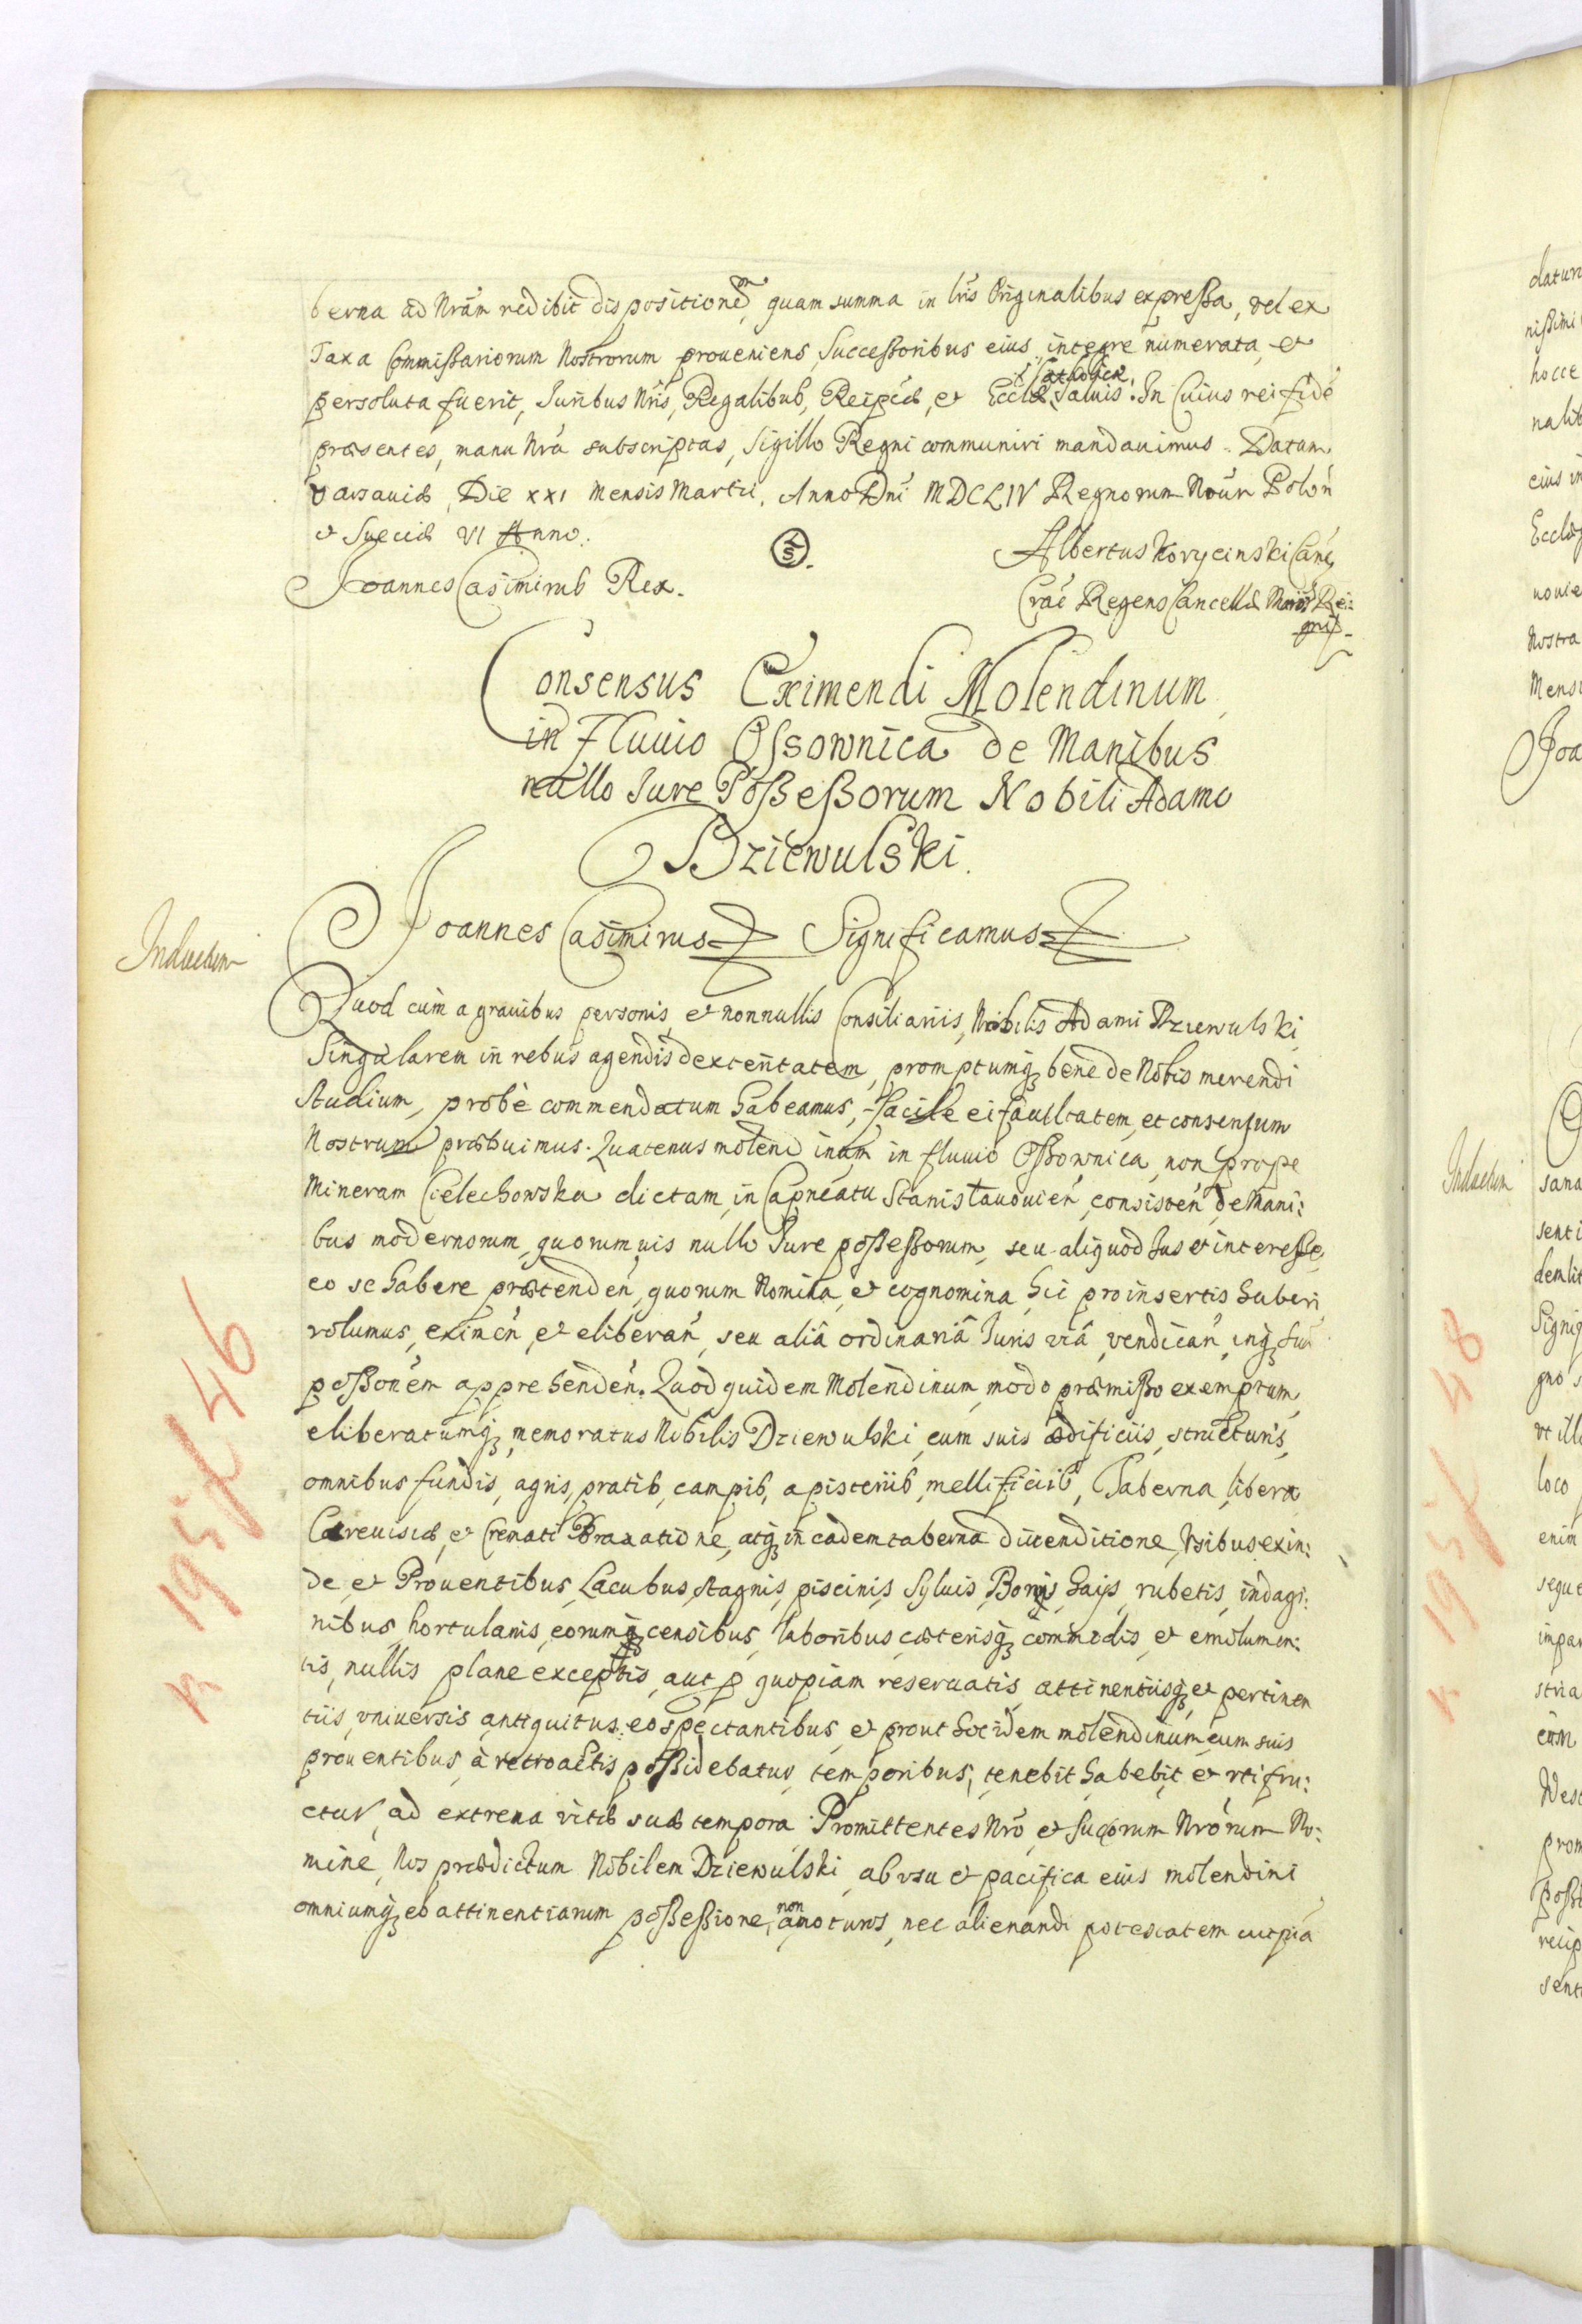 berna ad Nrám redibit dispositionem, quam summa in lris Originalibus expreßa, vel ex
Taxa Commißariorum Nostrorum proueniens, Succeßoribus eius integre numerata, et
persoluta fuerit, Juribus Nris, Regalibus, Reipcæ, et Ecclæ Catholicæ Saluis. In Cuius rei fidé
præsentes, manu Nrá subscriptas, Sigillo Regni communiri mandauimus. Datum
Varsauiæ, Die XXI Mensis Martii, Anno Dni MDCLIV Regnorum Nrór Polón
et Sueciæ VI Anno.
Joannes Casimirus Rex.
L S
Albertus Korycinski Canc
Crac Regens Cancellæ Maioris Re:
gni
Consensus Eximendi Molendinum
in Fluuio Ossownica de Manibus
nullo Jure Poßeßorum Nobili Adamo
Dziewulski.
Inductum
Joannes Casimirus Significamus
Quod cùm a grauibus personis, et nonnullis Consiliariis, Nobilis Adami Dziewulski
Singularem in rebus agendis dexteritatem, promptumq bene de Nobis merendi
Studium, probè commendatum habeamus, facile ei facultatem, et consensum
Nostrum præbuimus. Quatenus molendinum in fluuio Oßownica, non prope
Mineram Cielechowska dictam, in Capnéatu Stanislauouień, consistén, de Mani:
bus modernorum, quorumuis nullo Jure poßeßorum, seu aliquod Jus et intereße,
eo se habere prætendén, quorum Nomina, et cognomina hic pro insertis haberi
volumus, eximén, et eliberán, seu aliâ ordinariâ Juris viâ, vendicán, inq sui
poßoném apprehendén. Quod quidem Molendinum, modo præmißo exemptum,
eliberatumq, memoratus Nobilis Dziewulski, cum suis ædificiis, structuris,
omnibus fundis, agris, pratis, campis, apisteriis, mellificiis, Taberna libera
Cereuisiæ, et Cremati Braxatione, atq in eadem taberna diuenditione, Vsibus exin:
de, et Prouentibus, Lacubus, stagnis, piscinis, Syluis, Borris, Gaijs, rubetis, indagi:
nibus, hortulanis, eorumq censibus, laboribus, cæterisq commodis, et emolumen:
tis, nullis plane exceptis, aut p quopiam reseruatis, attinentiisq, et pertinen
tiis, vniuersis, antiquitus eo spectantibus, et prout hocidem molendinum, cum suis
prouentibus, à retroactis poßidebatur temporibus, tenebit habebit, et vti fru:
etur, ad extrema vitæ suæ tempora. Promittentes Nrò, et Sucórum Nrórum No:
mine, Nos prædictum Nobilem Dziewulski, ab vsu et pacifica eius molendini
omniumq eo attinentiarum poßeßione, non amoturos, nec alienandi potestatem cuipiá
k 195 / 46
datur
nißimi
hocce
nalib
eius in
Eccle
nouie
Nostra
Mensi
Joa
Inductum
sana
senti
demlit
Signiq
gno s
vt illa
loco
enim
seque
impar
stria
eum
West
prom
poßi
recip
senti
k 195 / 48